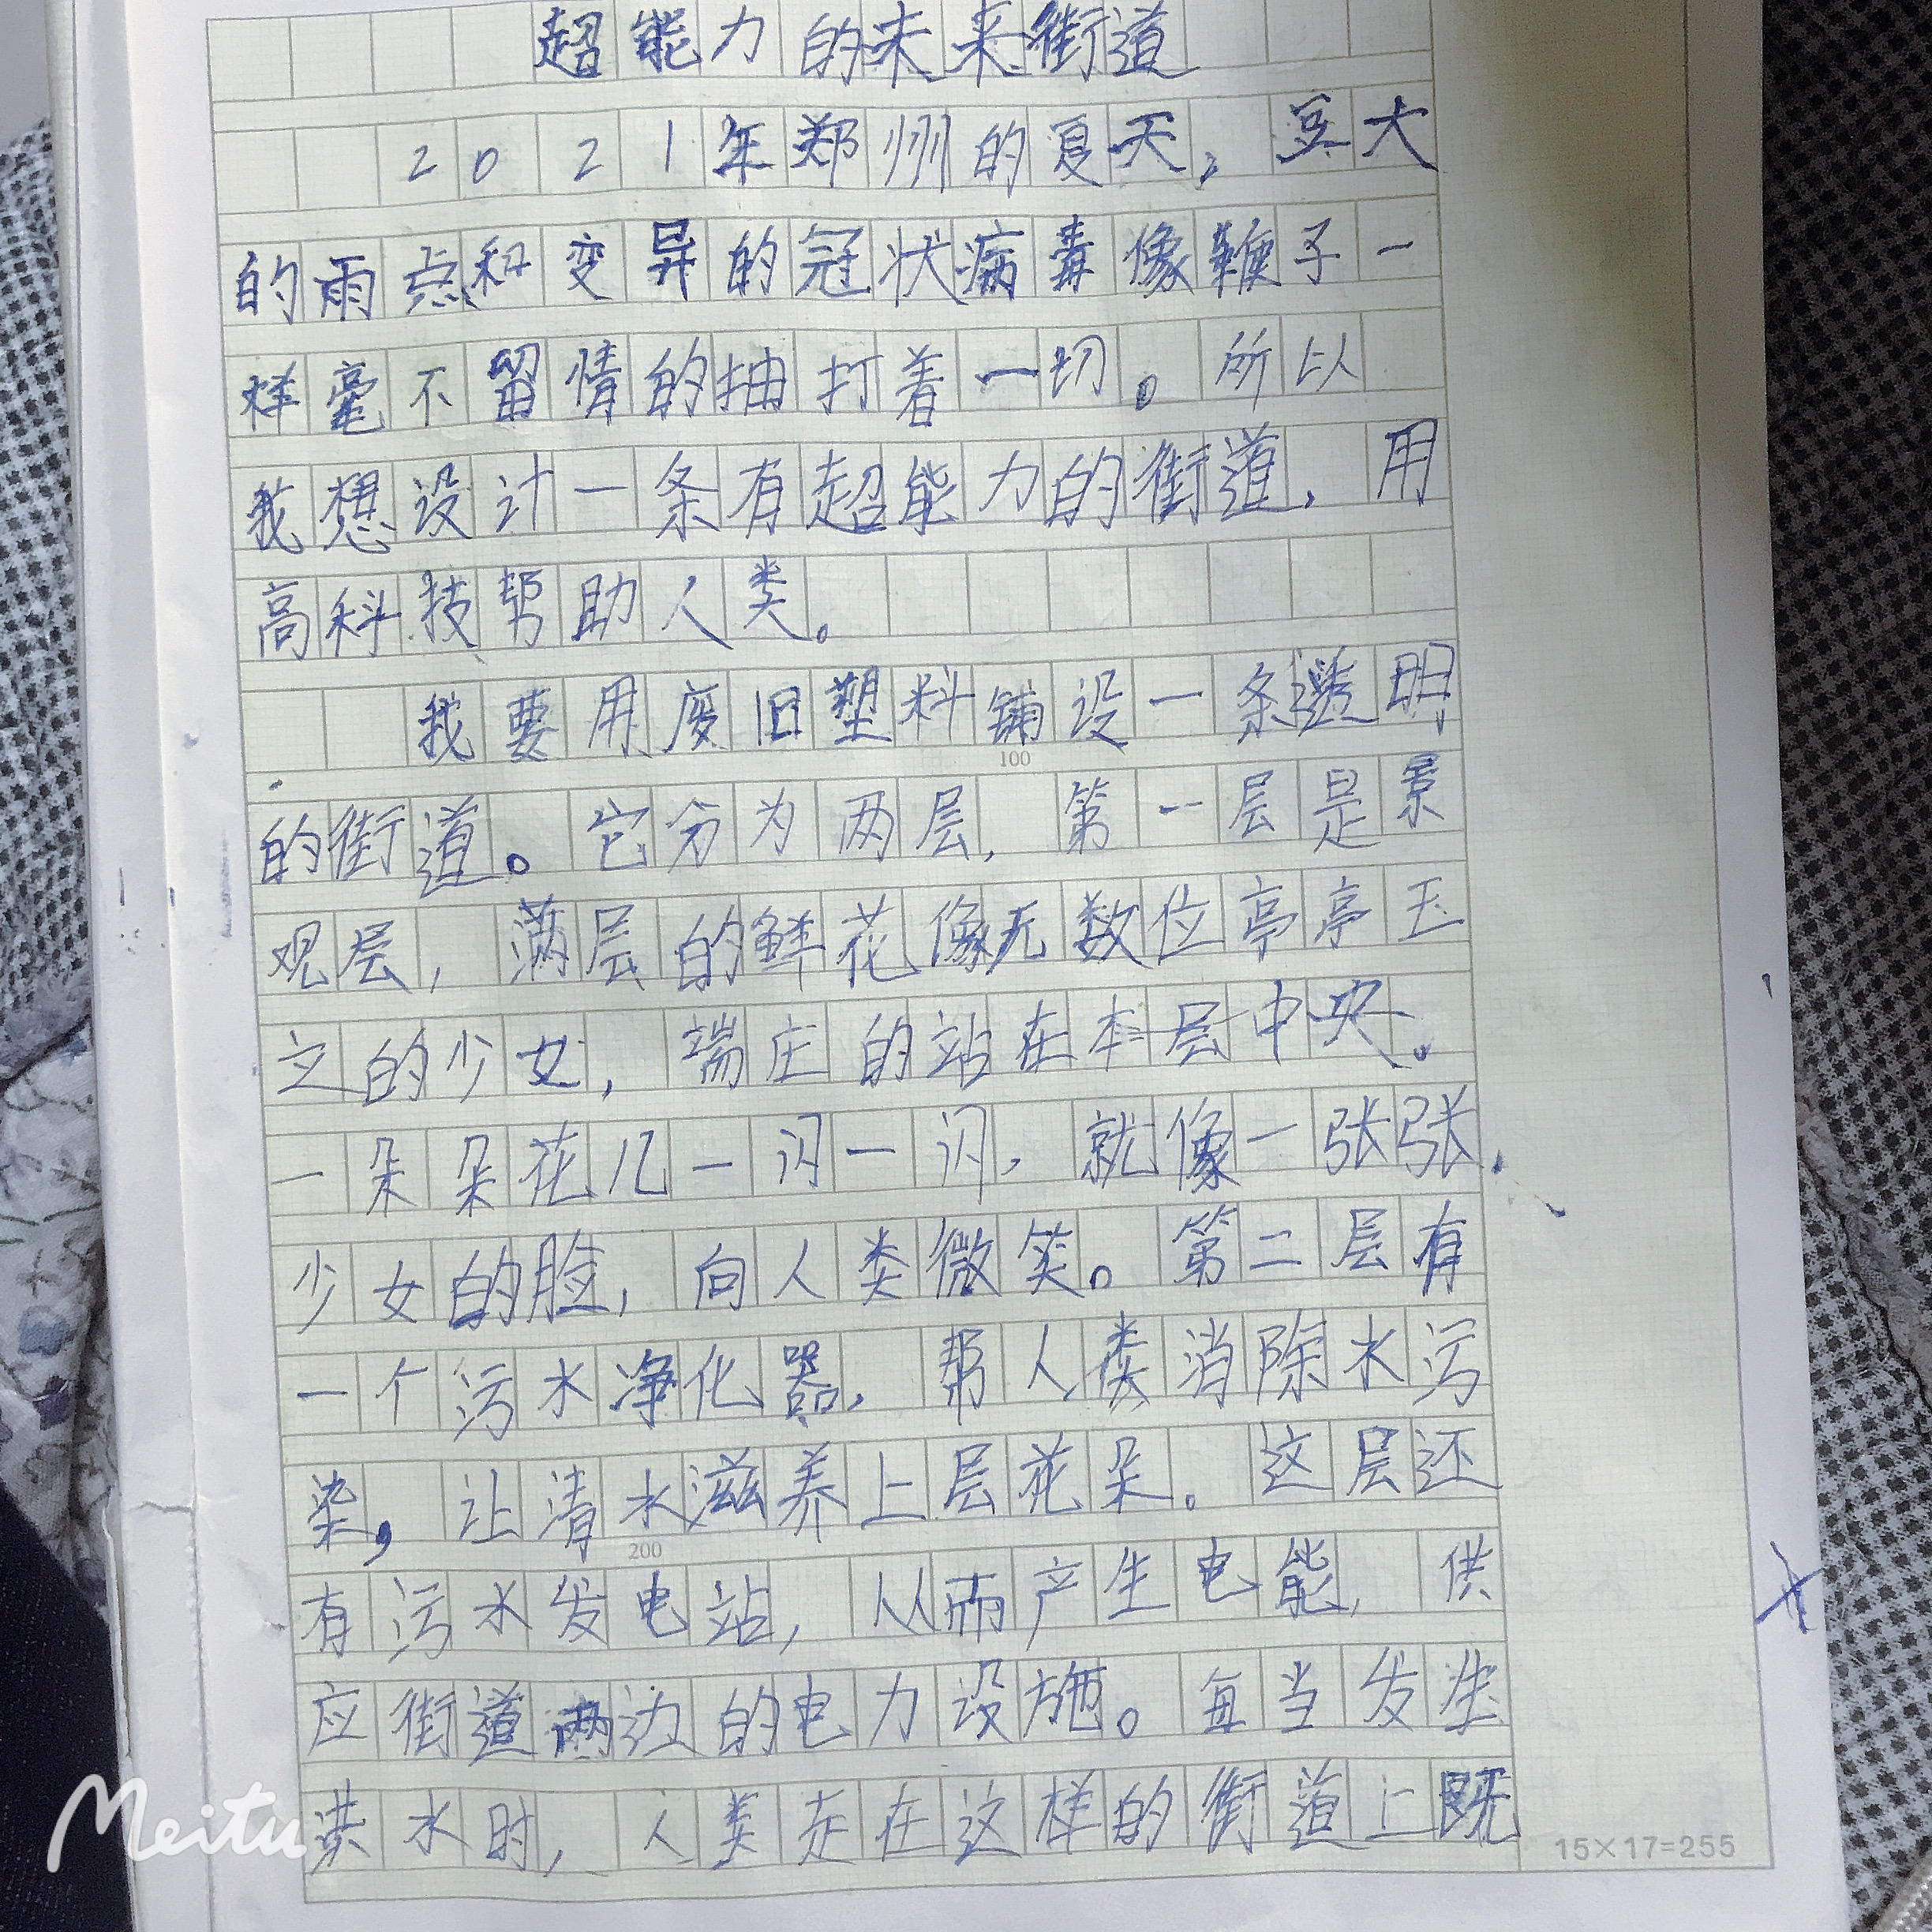 超能力的未来街道
2021年郑州的夏天，豆大
的雨点和变异的冠状病毒像鞭子一
样毫不留情的抽打着一切。所以
我想设计一条有超能力的街道，用
高科技帮助人类。
我要用废旧塑料铺设一条透明
100
的街道。它分为两层，第一层是景
观层，满层的鲜花像无数位亭亭玉
立的少女，端庄的站在本层中央。
一朵朵花儿一闪一闪，就像一张张
少女的脸，向人类微笑。第二层有
一个污水净化器，帮人类消除水污
染，让清水滋养上层花朵。这层还
200
有污水发电站，从而产生电能，供
应街道两边的电力设施。每当发生
洪水时，人类走在这样的街道上既
15×17=255
Meitu